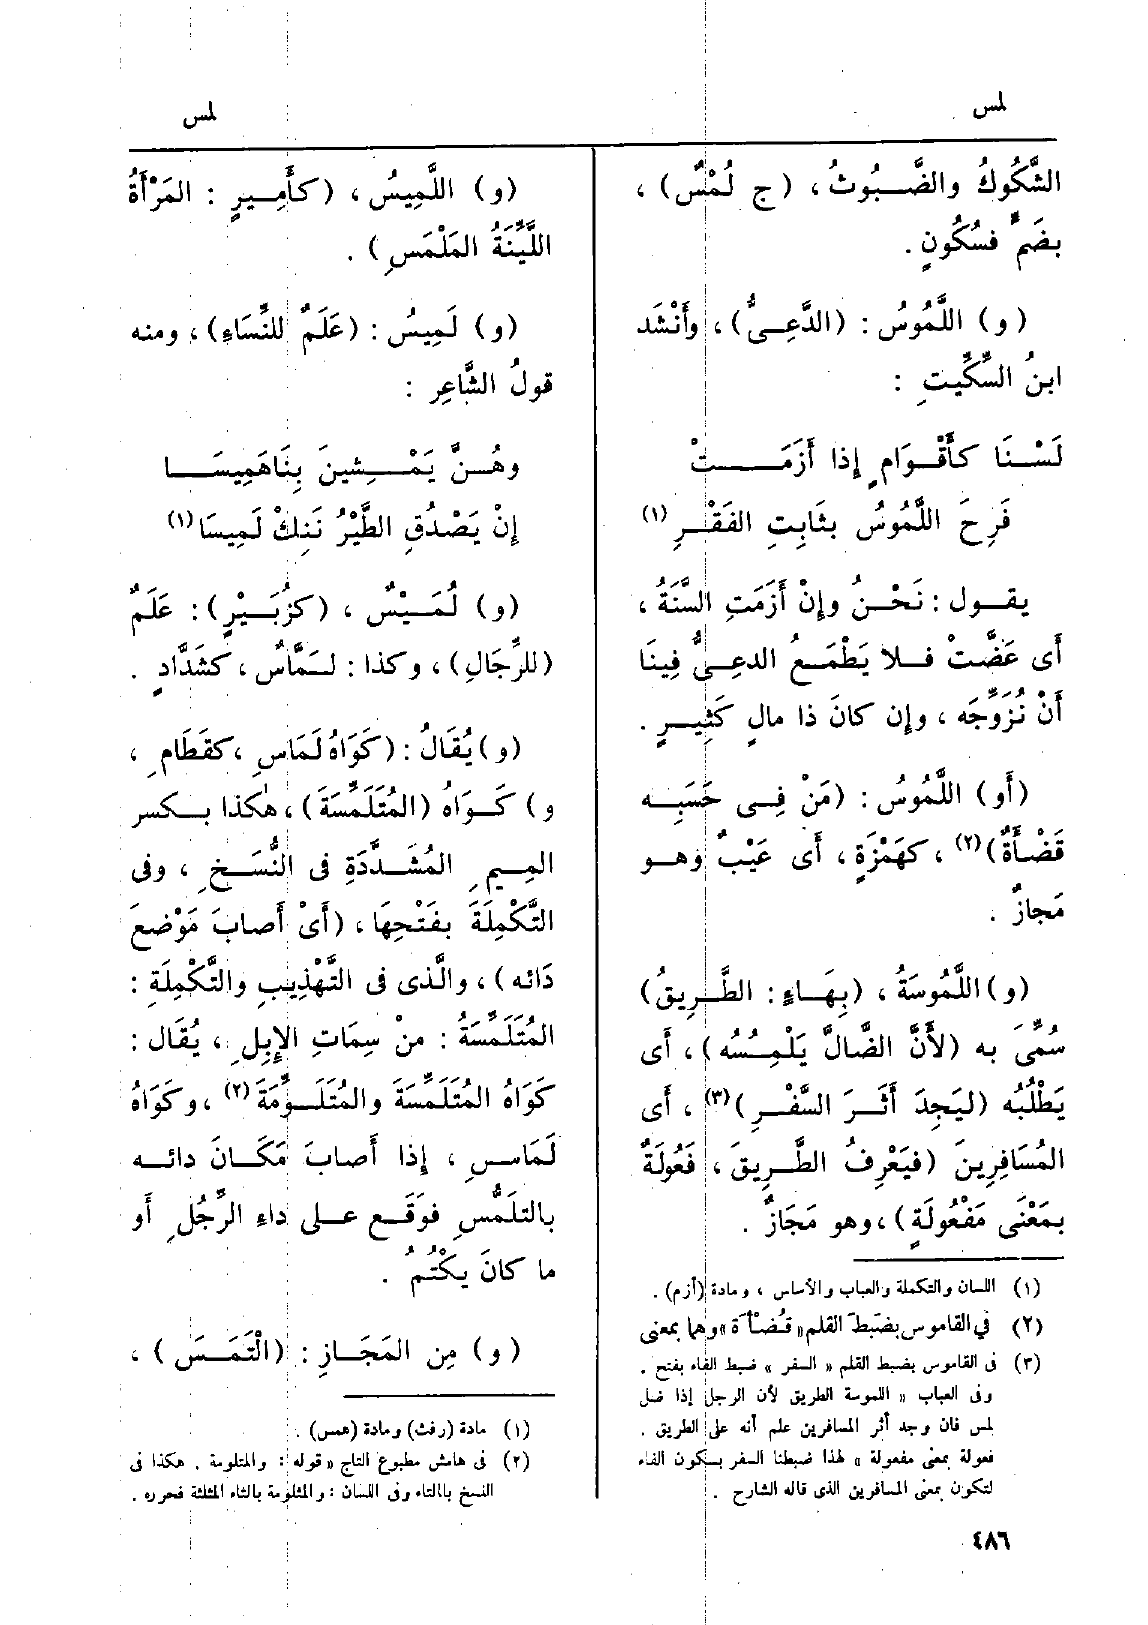 لمس
لمس
الشَّكُوكُ والضَّبُوثُ ، (ج لُمْسٌ) ،
بضَمٍّ فسُكُونٍ .
(و) اللَّمُوسُ : (الدَّعِىُّ) ، وأَنْشَد
ابنُ السِّكِّيتِ :
لَسْنَا كأَقْوَامٍ إِذا أَزَمَتْ
فَرِحَ اللَّمُوسُ بثَابِتِ الفَقْرِ (١)
يقول : نَحْنُ وإِنْ أَزَمَتِ السَّنَةُ ،
أَى عَضَّتْ فلا يَطْمَعُ الدعِىُّ فِينَا
أَنْ نُزَوِّجَه ، وإِن كانَ ذا مالٍ كَثِيرٍ .
(أَو) اللَّمُوسُ : (مَنْ فِى حَسَبِه
قَضْأَةٌ) (٢) ، كهَمْزَةٍ ، أَى عَيْبٌ وهو
مَجازٌ .
(و) اللَّمُوسَةُ ، (بِهَاءٍ : الطَّرِيقُ)
سُمِّىَ به (لأَنَّ الضَّالَّ يَلْمِسُه) ، أَى
يَطْلُبُه (ليَجِدَ أَثَرَ السَّفْرِ) (٣) ، أَى
المُسَافِرِينَ (فيَعْرِفُ الطَّرِيقَ ، فَعُولَةٌ
بمَعْنَى مَفْعُولَةٍ) ، وهو مَجَازٌ .
(١) اللسان والتكملة والعباب والأساس ، ومادة (أزم) .
(٢) في القاموس بضبط القلم « قُضْأَة » وهما بمعنى
(٣) فى القاموس بضبط القلم « السفر » ضبط الفاء بفتح .
وفى العباب « اللموسة الطريق لأن الرجل إذا ضل
لمس فان وجد أثر المسافرين علم أنه على الطريق .
فعولة بمعنى مفعولة » لهذا ضبطنا السفر بسكون الفاء
لتكون بمعنى المسافرين الذى قاله الشارح .
(و) اللَّمِيسُ ، (كأَمِيرٍ : المَرْأَةُ
اللَّيِّنَةُ المَلْمَسِ) .
(و) لَمِيسُ : (عَلَمٌ للنِّسَاءِ) ، ومنه
قولُ الشَّاعِر :
وهُنَّ يَمْشِينَ بِنَا هَمِيسَا
إِنْ يَصْدُقِ الطَّيْرُ نَنِكْ لَمِيسَا (١)
(و) لُمَيْسٌ ، (كزُبَيْرٍ) : عَلَمٌ
(للرِّجَالِ) ، وكذا : لَمَّاسٌ ، كشَدَّادٍ .
(و) يُقَالُ : (كَوَاهُ لَمَاسِ ، كقَطَامِ ،
و) كَوَاهُ (المُتَلَمِّسَةَ) ، هٰكذا بكسر
المِيمِ المُشَدَّدَةِ فى النُّسَخِ ، وفى
التَّكْمِلَةَ بفَتْحِهَا ، (أَىْ أَصابَ مَوْضِعَ
دَائه) ، والَّذى فى التَّهْذِيبِ والتَّكْمِلَةِ :
المُتَلَمِّسَةُ : منْ سِمَاتِ الإِبِلِ ، يُقَال :
كَوَاهُ المُتَلَمِّسَةَ والمُتَلَوِّمَةَ (٢) ، وكَوَاهُ
لَمَاسِ ، إِذا أَصابَ مَكَانَ دائه
بالتلَمُّسِ فوَقَع على داءِ الرَّجُلِ أَو
ما كانَ يَكْتُمُ .
(و) مِن المَجَازِ : (الْتَمَسَ) ،
(١) مادة (رفث) ومادة (همس) .
(٢) فى هامش مطبوع التاج « قوله : والمتلومة . هكذا فى
النسخ بالتاء وفى اللسان : والمثلومة بالثاء المثلثة فحرره .
٤٨٦